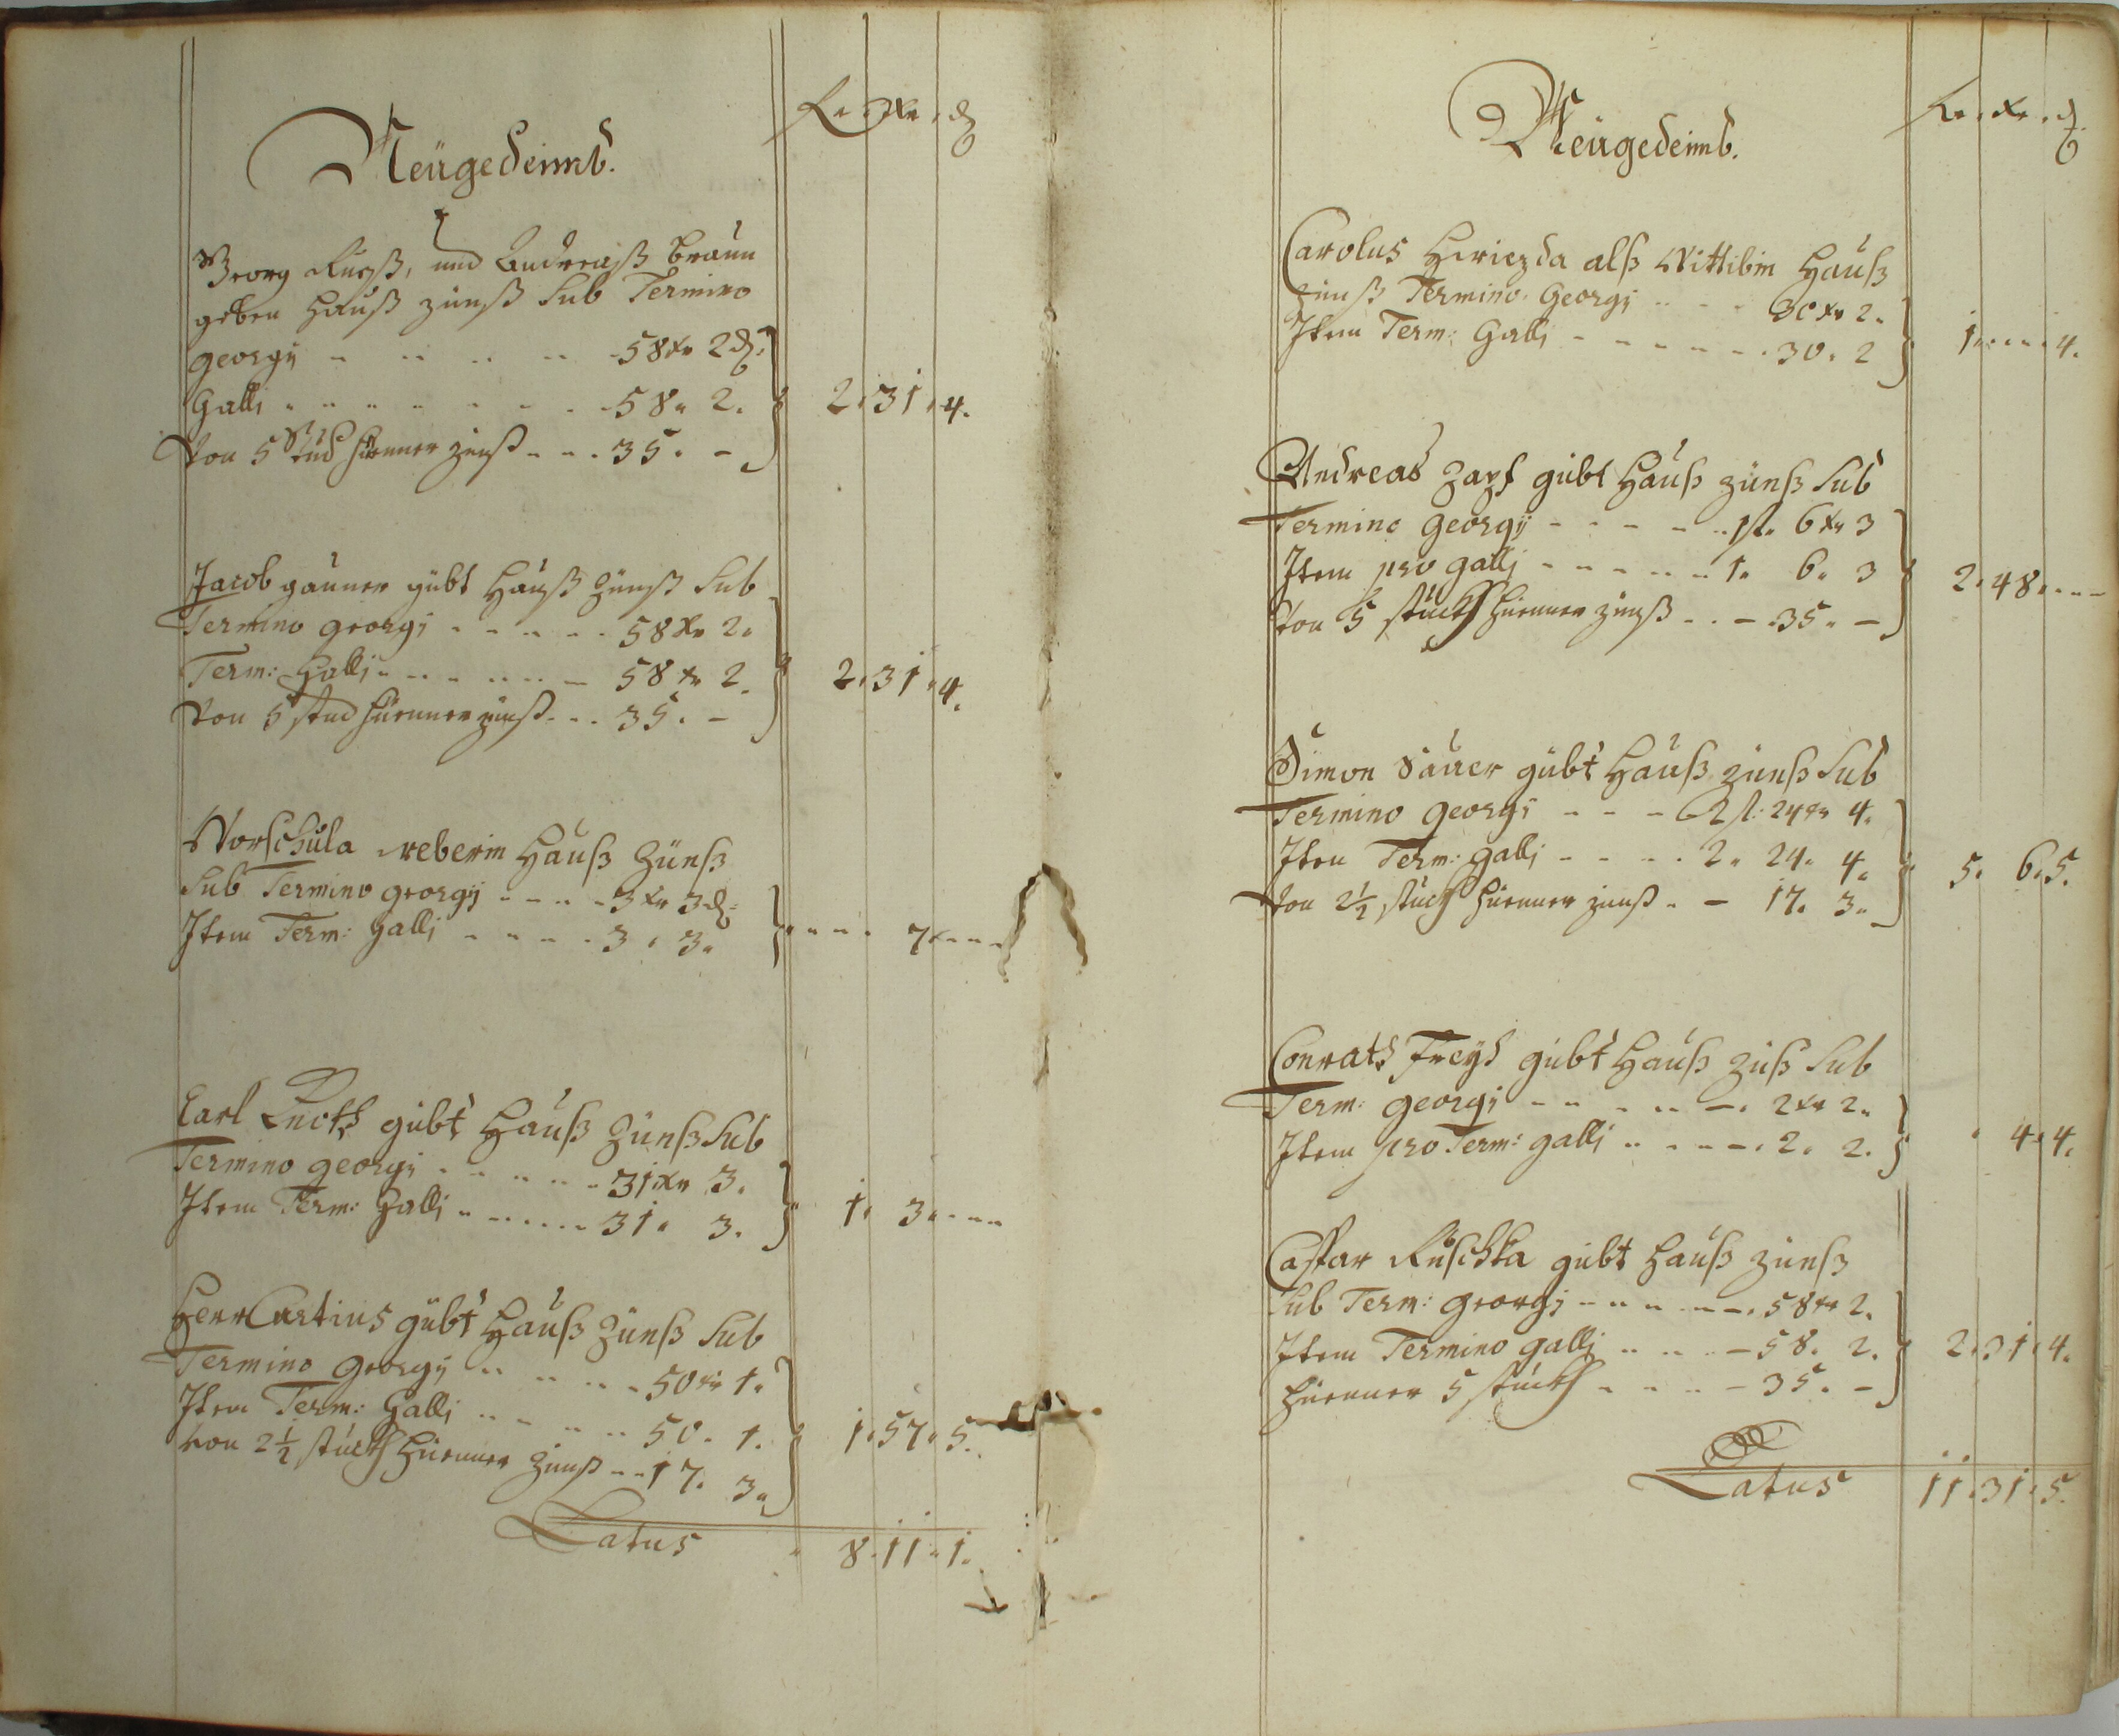 Neügedeimb.
fl. Xr. ₰
Georg Ruess, und Andreaß Braun
geben Hauß zünß Sub Termino
Georgy - - - - 58 Xr 2 ₰.
Galli - - - - - - 58. 2. 2. 31. 4.
Von 5 Stück Hüenner zünß - - - 35. -
Jacob gauner gübt Hauß Zünß Sub
Termino Georgi - - - - - 58 Xr 2.
Term: Galli - - - - - - 58 Xr 2. 2. 31. 4.
Von 5 stuck hüenner zünß - - - 35. -
Worschüla reberin Hauß Zünß
Sub Termino georgy - - - - 3 Xr 3 ₰.
Item Term: Galli - - - - - 3. 3. - - - - 7. - - -
Carl gübt Hauß Zünß Sub
Termino georgi - - - - - 31 Xr 3.
Item Term: Galli - - - - - - 31. 3. 1. 3. - - -
Herr Curtius gübt Hauß Zünß Sub
Termino Georgy - - - - 50 Xr 1.
Item Term: Galli - - - - - 50. 1. 1. 57. 5.
von 2½ stückh Hüenner Zünß - - 17. 3.
Latus 8. 11. 1.
Neügedeimb.
fl. Xr. ₰.
Carolus alß Wittibin Hauß
zünß Termino Georgy - - - 30 Xr 2.
Item Term: Galli - - - - - - 30. 2 1. - - - 4.
Andreas Zapf gübt Hauß zünß Sub
Termino Georgy - - - - - 1 fl. 6 Xr 3
Item pro galli - - - - - - 1. 6. 3 2. 48. - - -
Von 5 stückh hüenner zünß - - - 35. -
Simon Sauer gübt Hauß zünß Sub
Termino Georgi - - - 2 fl: 24 Xr 4.
Item Term: galli - - - - 2. 24. 4. 5. 6. 5.
Von 2½ stückh hüenner zünß. - 17. 3.
Conrath Freyd gübt Hauß züß Sub
Term: georgi - - - - -. 2 Xr 2.
Item pro Term: galli - - - - -. 2. 2. . 4. 4.
Caspar Ruschka gübt hauß zünß
Sub Term: georgi - - - - -. 58 Xr 2.
Item Termino galli - - - - 58. 2. 2. 31. 4.
hüenner 5 stückh - - - - 35. -
Latus 11. 31. 5.